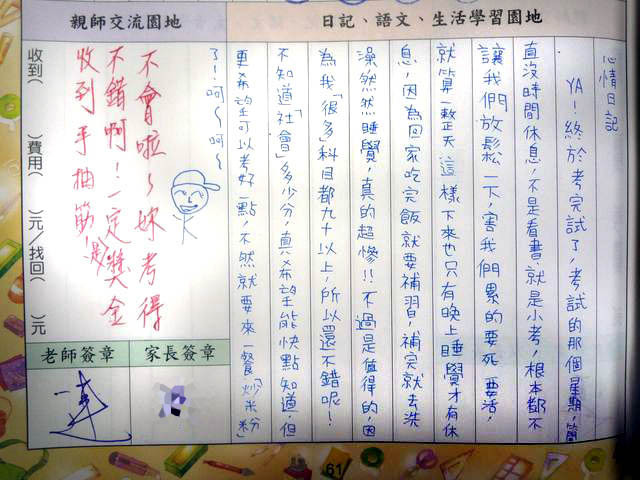 日記、語文、生活學習園地
心情日記
YA！終於考完試了，考試的那個星期，簡
直沒時間休息，不是看書，就是小考，根本都不
讓我們放鬆一下，害我們累的要死要活，
就算一整天這樣下來也只有晚上睡覺才有休
息，因為回家吃完飯就要補習，補完就去洗
澡然然睡覺，真的超慘!!不過是值得的，因
為我「很多」科目都九十以上，所以還不錯呢！
不知道「社會」多少分，真希望能快點知道，但
更希望可以考好一點，不然就要來一餐「炒米粉」
了！呵～呵～
親師交流園地
不會啦～妳考得
不錯啊！一定獎金
收到手抽筋！
收到(　　)費用(　　)元/找回(　　)元
家長簽章
老師簽章
61